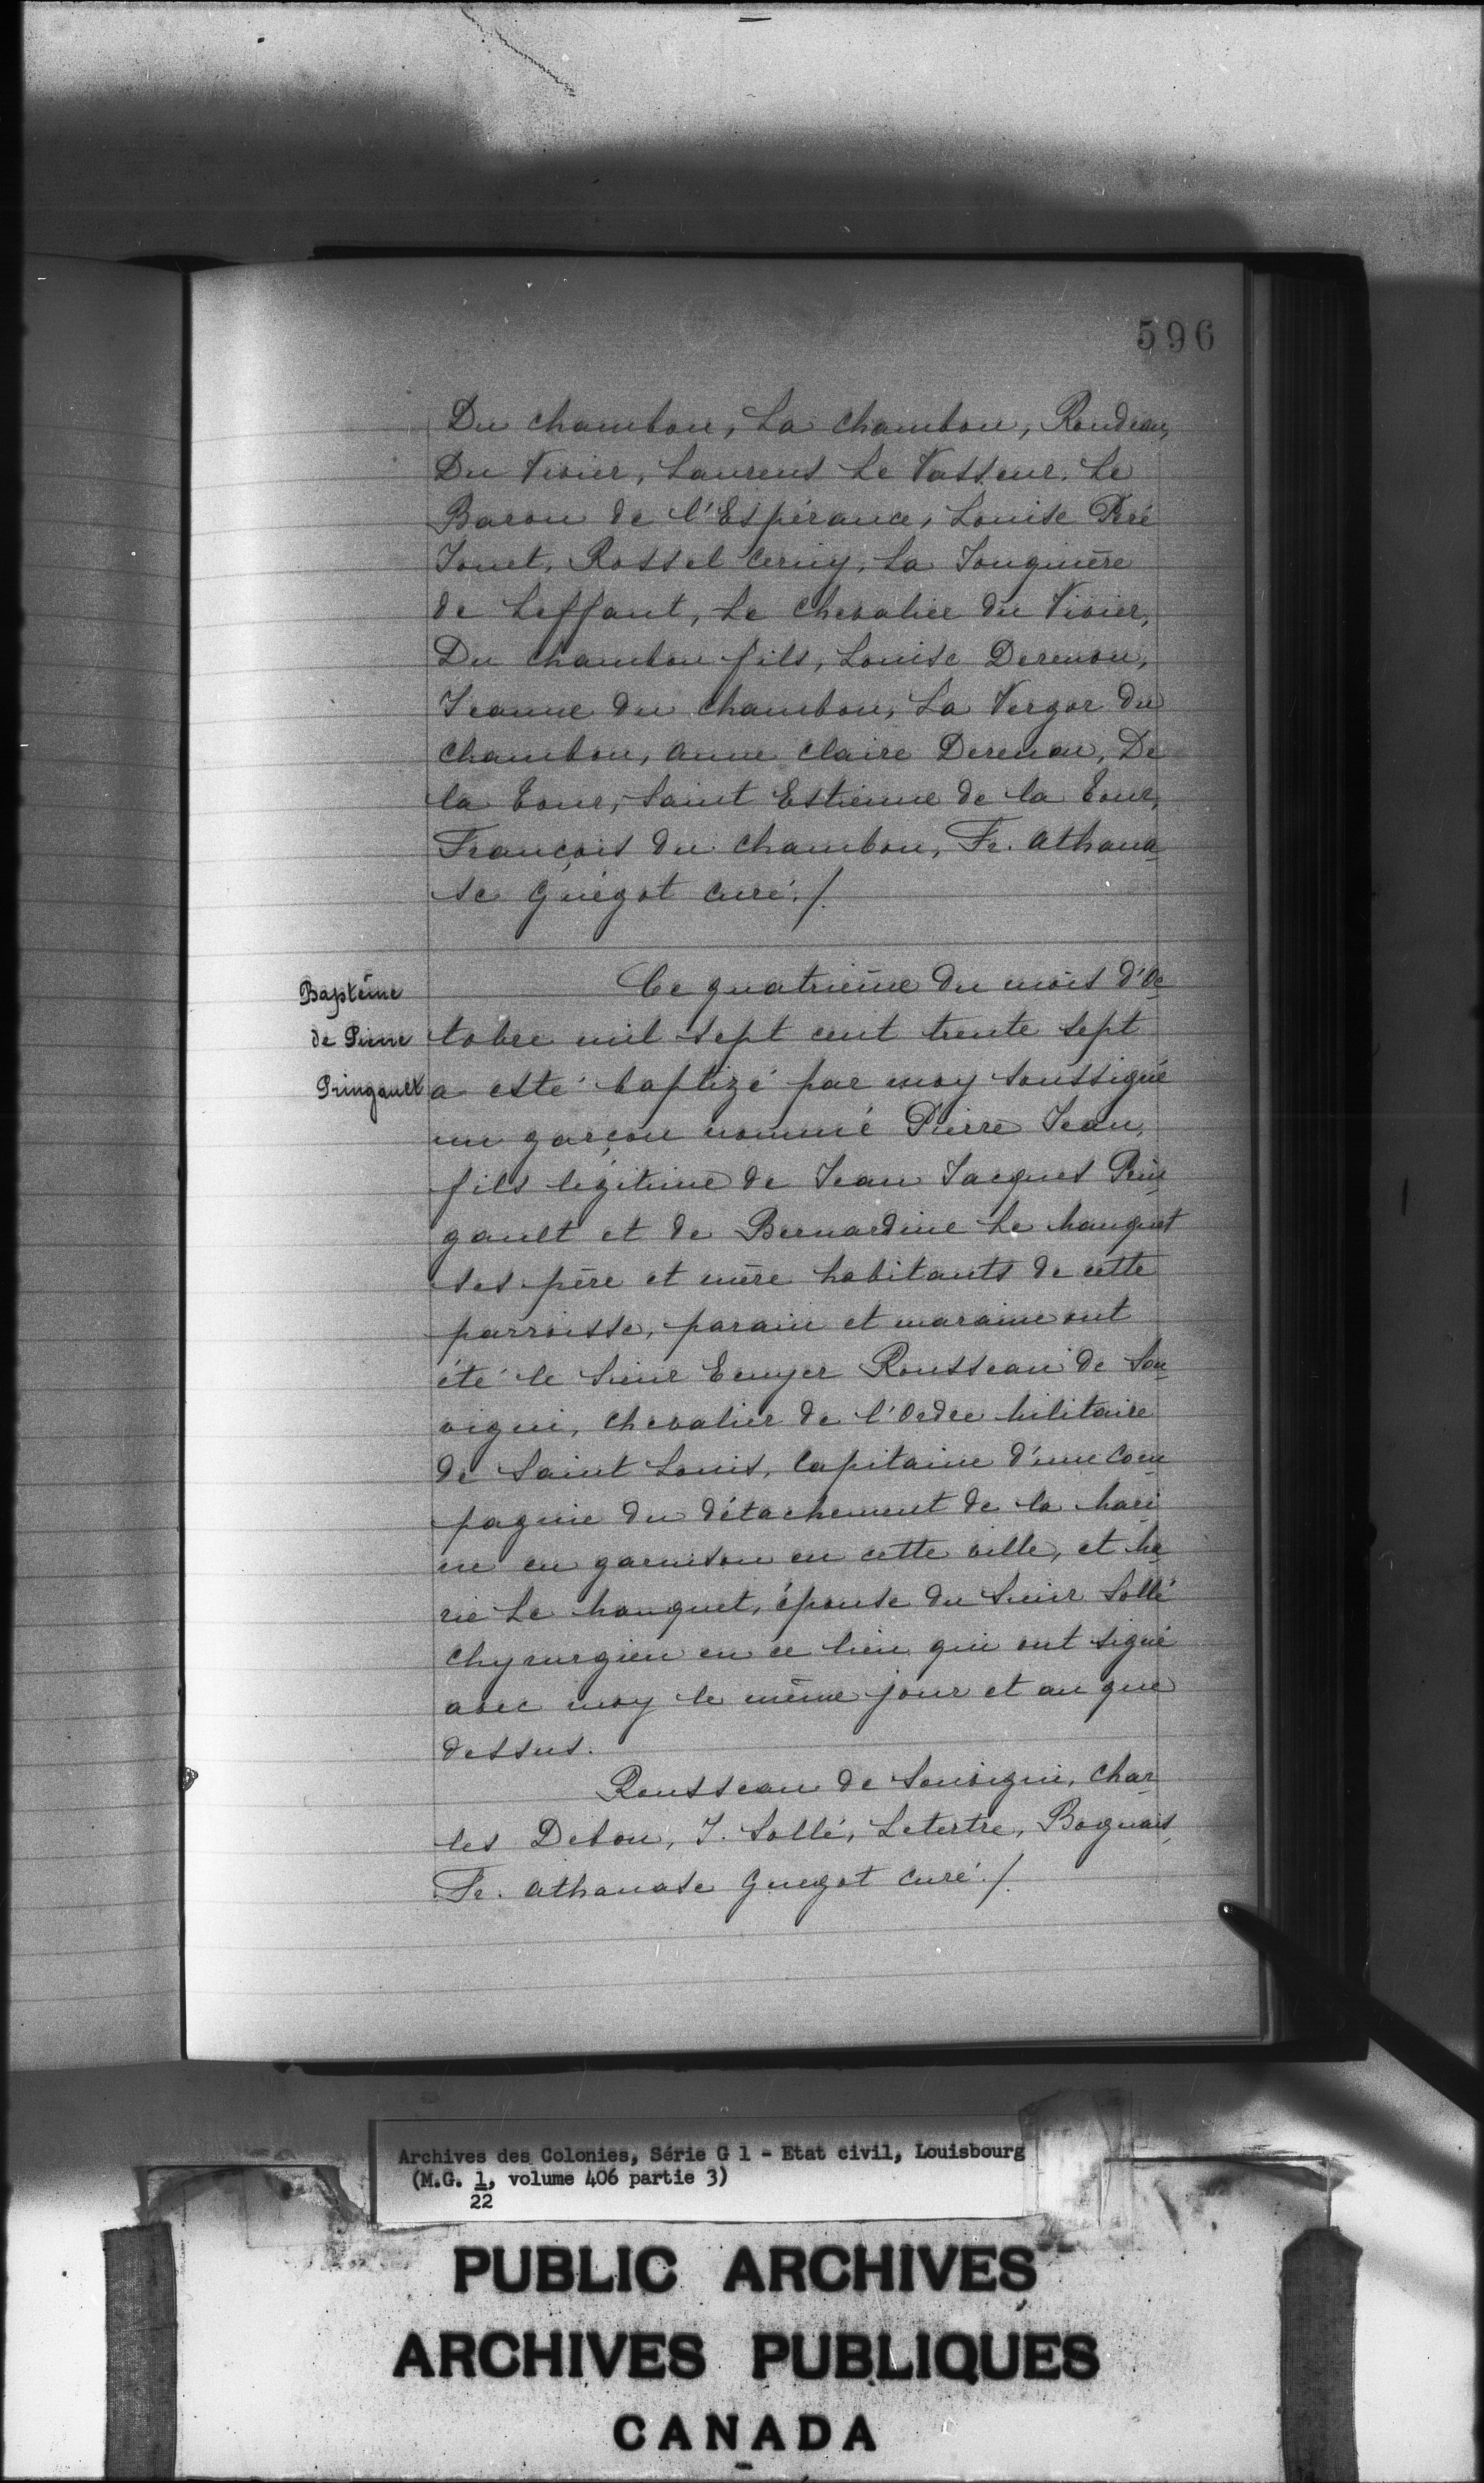 596
Du Chambon, La Chambon, Rondeau,
Du Vivier, Laurens Le Vasseur, Le
Baron de l'Espérance, Louise Peré
Jouet, Rossel Cerny, La Jonquière
de Leffant, Le Chevalier du Vivier,
Du Chambon fils, Louise Derenou,
Jeanne du Chambon, La Vergor du
Chambon, Anne Claire Derenou, De
la Tour, Saint Estienne de la Tour,
François du Chambon, Fr. Athana
se Guégot curé./.
Baptême
de Pierre
Pringault
Ce quatrième du mois d'Oc
tobre mil sept cent trente sept
a esté baptizé par moy soussigné
un garçon nommé Pierre Jean,
fils légitime de Jean Jacques Prin
gault et de Bernardine Le Manquet
ses père et mère habitants de cette
parroisse, parain et maraine ont
été le Sieur Ecuyer Rousseau de Sou
vigni, Chevalier de l'Ordre Militaire
de Saint Louis, Capitaine d'une Com
pagnie du détachement de la Mari
ne en garnison en cette ville, et Ma
rie Le Manquet, épouse du Sieur Sollé
Chyrurgien en ce lieu qui ont signé
avec moy le même jour et an que
dessus.
Rousseau de Souvigni, Char
les Debon, J. Sollé, Letertre, Boguais,
Fr. Athanase Guegot curé./.
Archives des Colonies, Série G 1 - Etat civil, Louisbourg
(M.G. 1, volume 406 partie 3)
22
PUBLIC ARCHIVES
ARCHIVES PUBLIQUES
CANADA